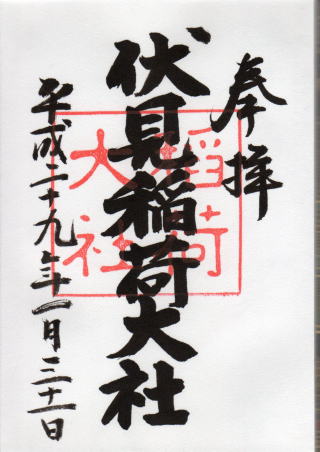 奉拝
伏見稲荷大社
稲荷大社
平成二十九年一月三十一日